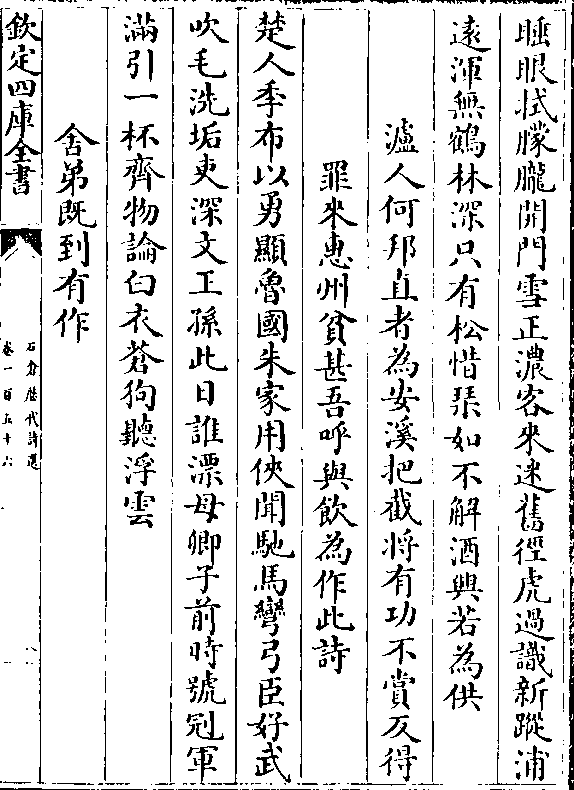 睡眼拭朦朧開門雪正濃客來迷舊徑虎過識新蹤浦
遠渾無鶴林深只有松惜琴如不解酒興若為供
瀘人何邦直者為安溪把截將有功不賞反得
罪來惠州貧甚吾呼與飲為作此詩
楚人季布以勇顯魯國朱家用俠聞馳馬彎弓臣好武
吹毛洗垢吏深文王孫此日誰漂母卿子前時號冠軍
滿引一杯齊物論白衣蒼狗聽浮雲
舍弟既到有作
欽定四庫全書
石倉歷代詩選
卷一百五十六